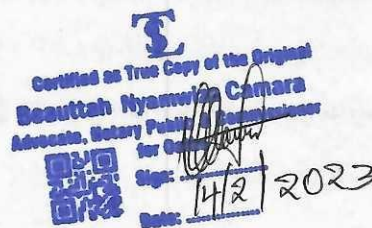 Certified as True Copy of the Original
Beauttah Camara
Advocate, Notary Public & Commissioner
for
Sign:
Date: 14/2/2023